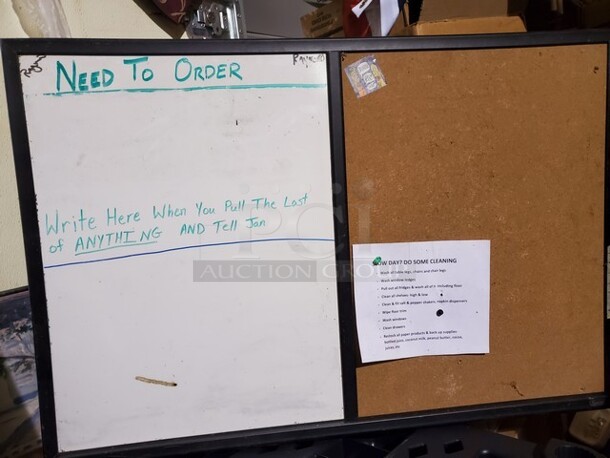 NEED TO ORDER
Write Here When You Pull The Last
of ANYTHING AND Tell Jan
PCI
AUCTION GROUP
OW DAY? DO SOME CLEANING
- Wash all table legs, chairs and chair legs
- Wash window ledges
- Pull out all fridges & wash all of it including floor
- Clean all shelves, high & low
- Clean & fill salt & pepper shakers, napkin dispensers
- Wipe floor trim
- Wash windows
- Clean drawers
- Restock all paper products & back up supplies
bottled juice, coconut milk, peanut butter, cocoa,